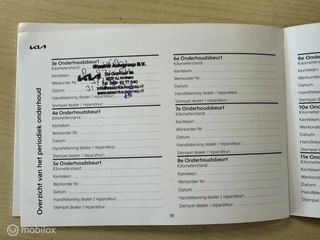 KIA
Overzicht van het periodiek onderhoud
3e Onderhoudsbeurt
Kilometerstand:
Kenteken:
Werkorder Nr:
Datum:
Handtekening dealer / reparateur:
Stempel dealer / reparateur:
Wassink Autogroep B.V.
KIA
4e Onderhoudsbeurt
Kilometerstand:
Kenteken:
Werkorder Nr:
Datum:
Handtekening dealer / reparateur:
Stempel dealer / reparateur:
5e Onderhoudsbeurt
Kilometerstand:
Kenteken:
Werkorder Nr:
Datum:
Handtekening dealer / reparateur:
Stempel dealer / reparateur:
6e Onderhoudsbeurt
Kilometerstand:
Kenteken:
Werkorder Nr:
Datum:
Handtekening dealer / reparateur:
Stempel dealer / reparateur:
7e Onderhoudsbeurt
Kilometerstand:
Kenteken:
Werkorder Nr:
Datum:
Handtekening dealer / reparateur:
Stempel dealer / reparateur:
8e Onderhoudsbeurt
Kilometerstand:
Kenteken:
Werkorder Nr:
Datum:
Handtekening dealer / reparateur:
Stempel dealer / reparateur:
18
mobilox